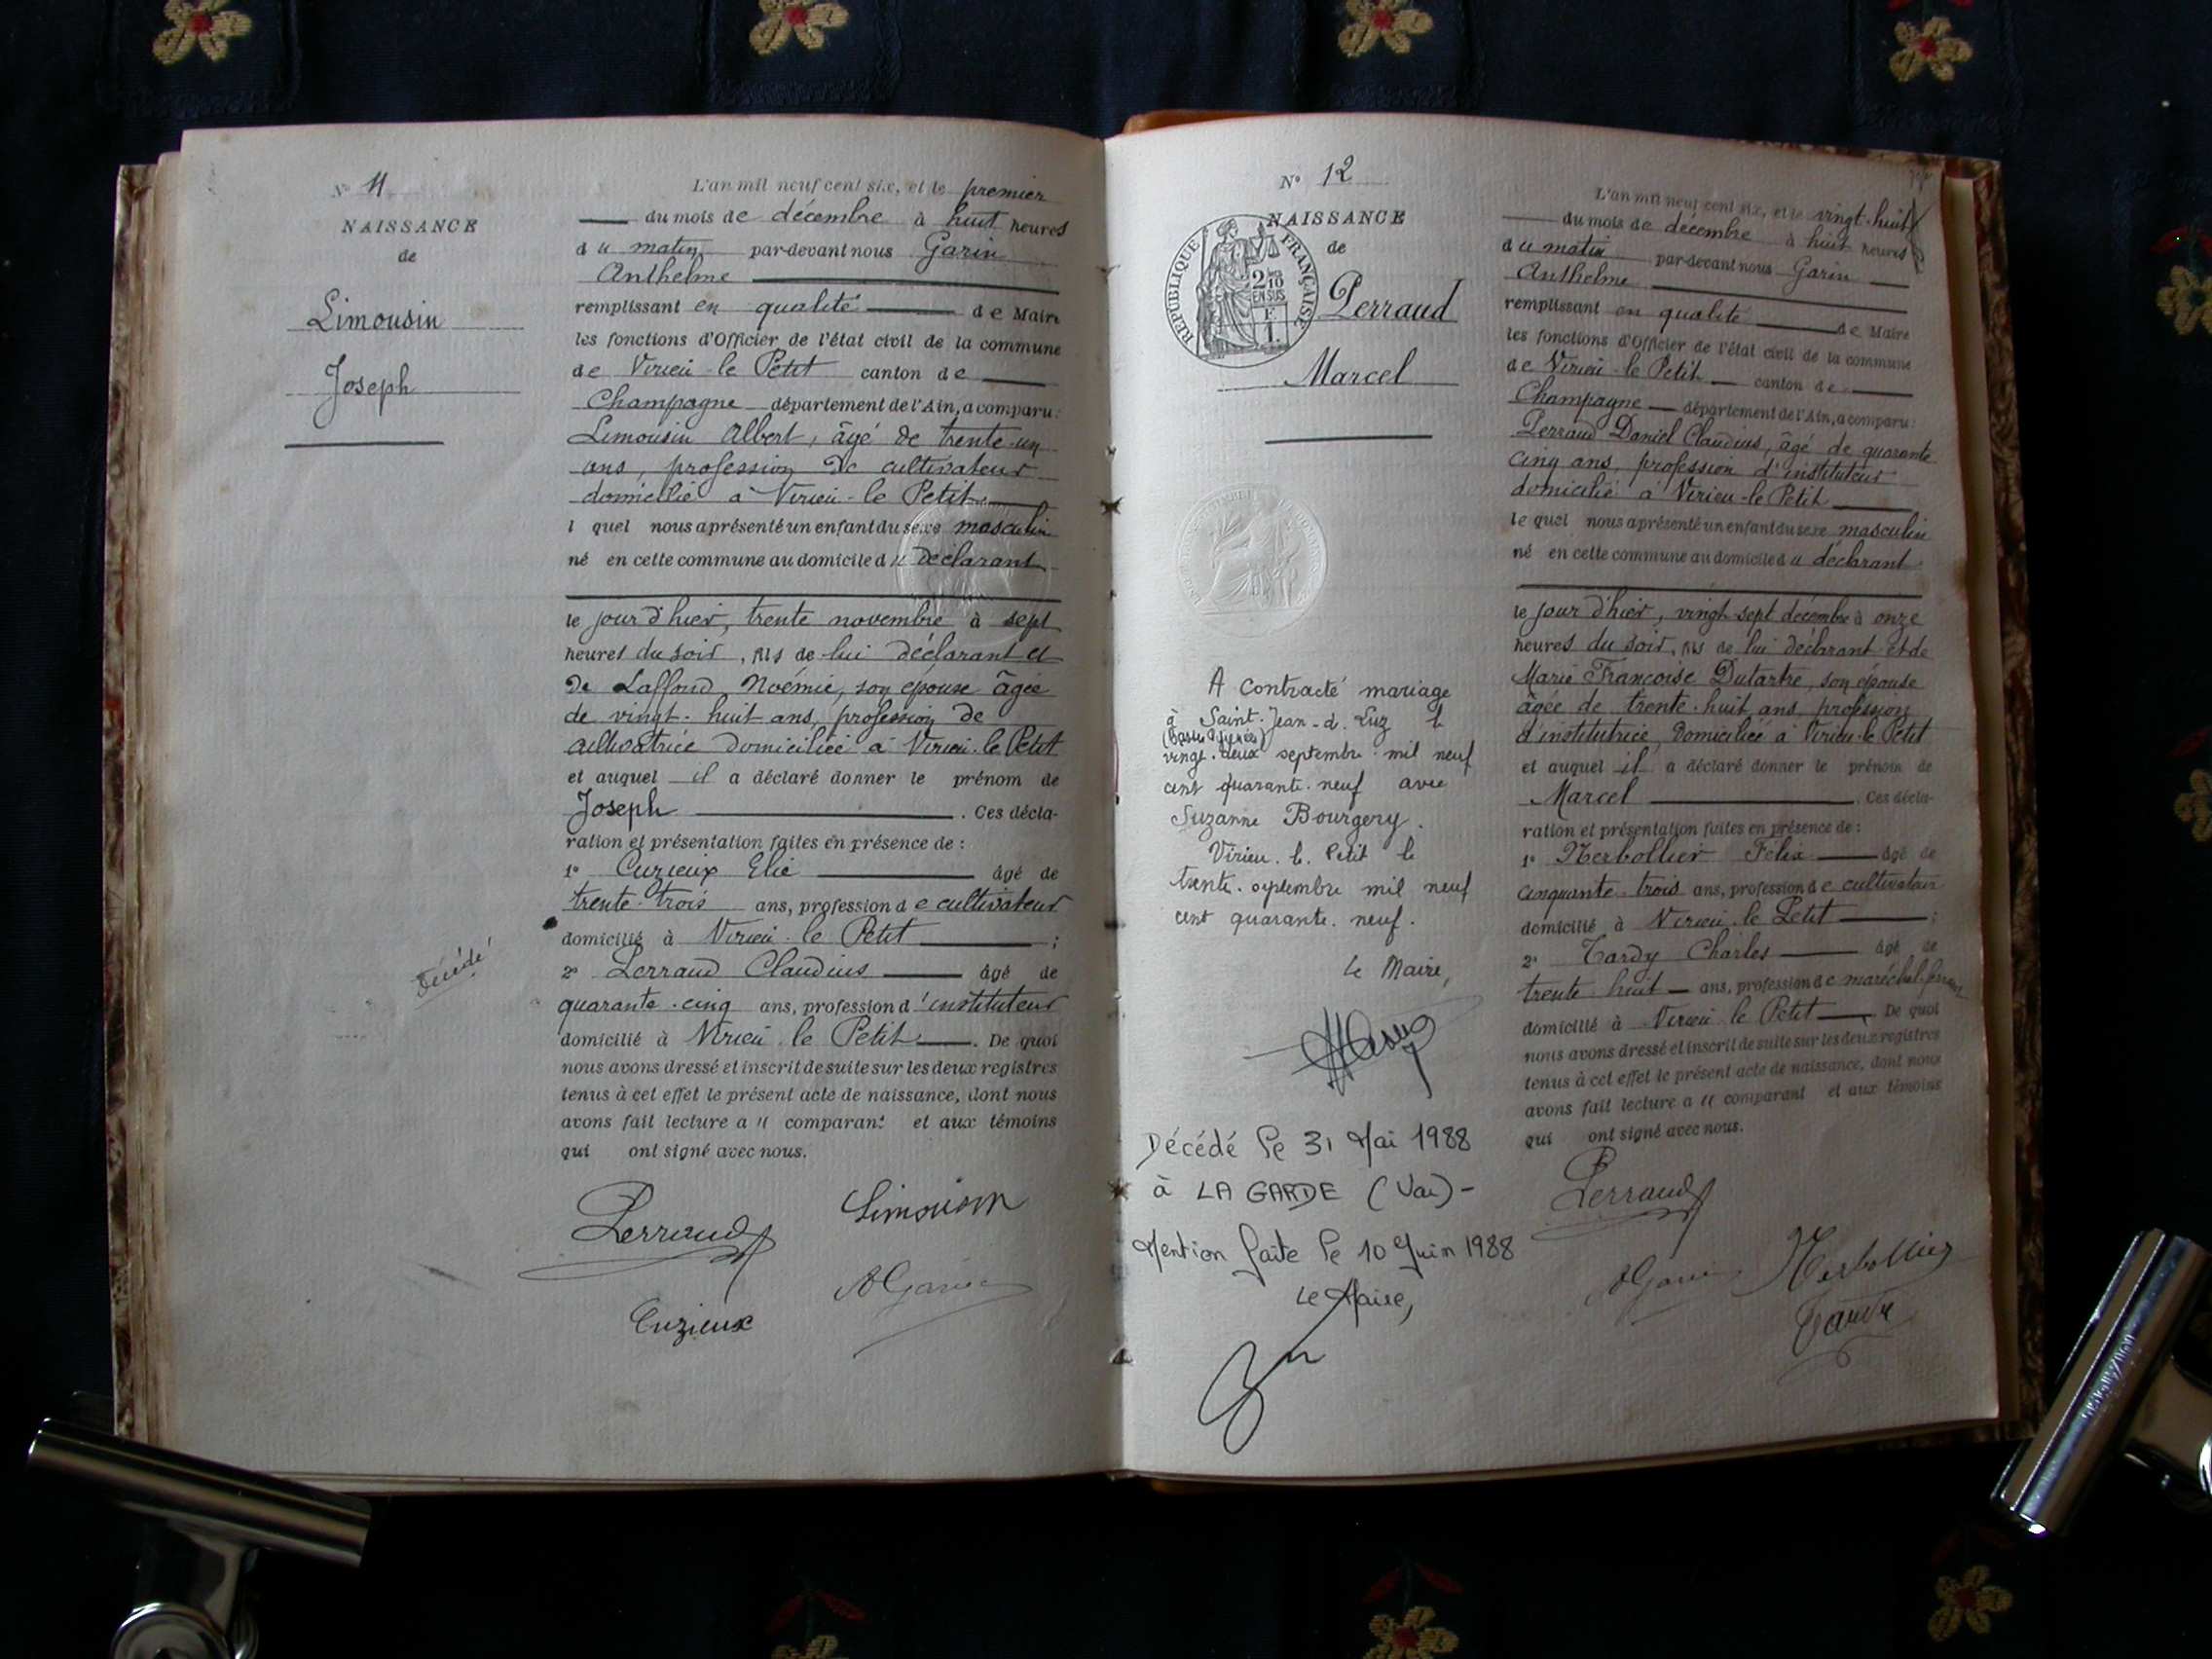 N° 11
NAISSANCE
de
Limousin
Joseph
Décédé
L'an mil neuf cent six, et le premier
du mois de décembre à huit heures
du matin par-devant nous Garin
Anthelme
remplissant en qualité de Maire
les fonctions d'Officier de l'état civil de la commune
de Virieu-le Petit canton de
Champagne département de l'Ain, a comparu:
Limousin Albert, âgé de trente-un
ans, profession de cultivateur
domicilié à Virieu-le Petit
l quel nous a présenté un enfant du sexe masculin
né en cette commune au domicile du déclarant
le jour d'hier, trente novembre à sept
heures du soir, fils de lui déclarant et
de Laffond Noémie, son épouse âgée
de vingt-huit ans, profession de
cultivatrice domiciliée à Virieu-le Petit
et auquel il a déclaré donner le prénom de
Joseph . Ces décla-
ration et présentation faites en présence de :
1° Curieux Elie âgé de
trente-trois ans, profession de cultivateur
domicilié à Virieu-le Petit ;
2° Perraud Claudius âgé de
quarante-cinq ans, profession d'instituteur
domicilié à Virieu-le Petit . De quoi
nous avons dressé et inscrit de suite sur les deux registres
tenus à cet effet le présent acte de naissance, dont nous
avons fait lecture au comparant et aux témoins
qui ont signé avec nous.
Perraud
Limousin
Cuzieux
AGarin
N° 12
NAISSANCE
de
RÉPUBLIQUE FRANÇAISE
2/10
EN SUS
Perraud
Marcel
A contracté mariage
à Saint-Jean-d. Luz le
(Basses Pyrénées)
vingt-deux septembre mil neuf
cent quarante-neuf avec
Suzanne Bourgery.
Virieu-le-Petit le
trente septembre mil neuf
cent quarante-neuf.
Le Maire,
Décédé le 31 Mai 1988
à LA GARDE (Var)-
Mention faite le 10 Juin 1988
Le Maire,
L'an mil neuf cent six, et le vingt-huit
du mois de décembre à huit heures
du matin par-devant nous Garin
Anthelme
remplissant en qualité de Maire
les fonctions d'Officier de l'état civil de la commune
de Virieu-le Petit canton de
Champagne département de l'Ain, a comparu:
Perraud Daniel Claudius, âgé de quarante
cinq ans, profession d'instituteur
domicilié à Virieu-le Petit
le quel nous a présenté un enfant du sexe masculin
né en cette commune au domicile du déclarant
le jour d'hier, vingt-sept décembre à onze
heures du soir, fils de lui déclarant et de
Marie Françoise Dutartre, son épouse
âgée de trente-huit ans, profession
d'institutrice, domiciliée à Virieu-le Petit
et auquel il a déclaré donner le prénom de
Marcel . Ces décla-
ration et présentation faites en présence de :
1° Merbollier Félix âgé de
cinquante-trois ans, profession de cultivateur
domicilié à Virieu-le Petit ;
2° Tardy Charles âgé de
trente-huit ans, profession de maréchal-ferrant
domicilié à Virieu-le Petit . De quoi
nous avons dressé et inscrit de suite sur les deux registres
tenus à cet effet le présent acte de naissance, dont nous
avons fait lecture au comparant et aux témoins
qui ont signé avec nous.
Perraud
AGarin
Merbollier